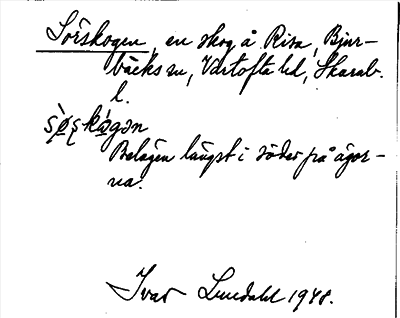 Sörskogen, en skog å Risa, Bjur-
bäcks sn, Vartofta hd, Skarab.
l.
sø̀skó̱gən
Belägen längst i söder på ägor-
na.
Ivar Lundahl 1948.